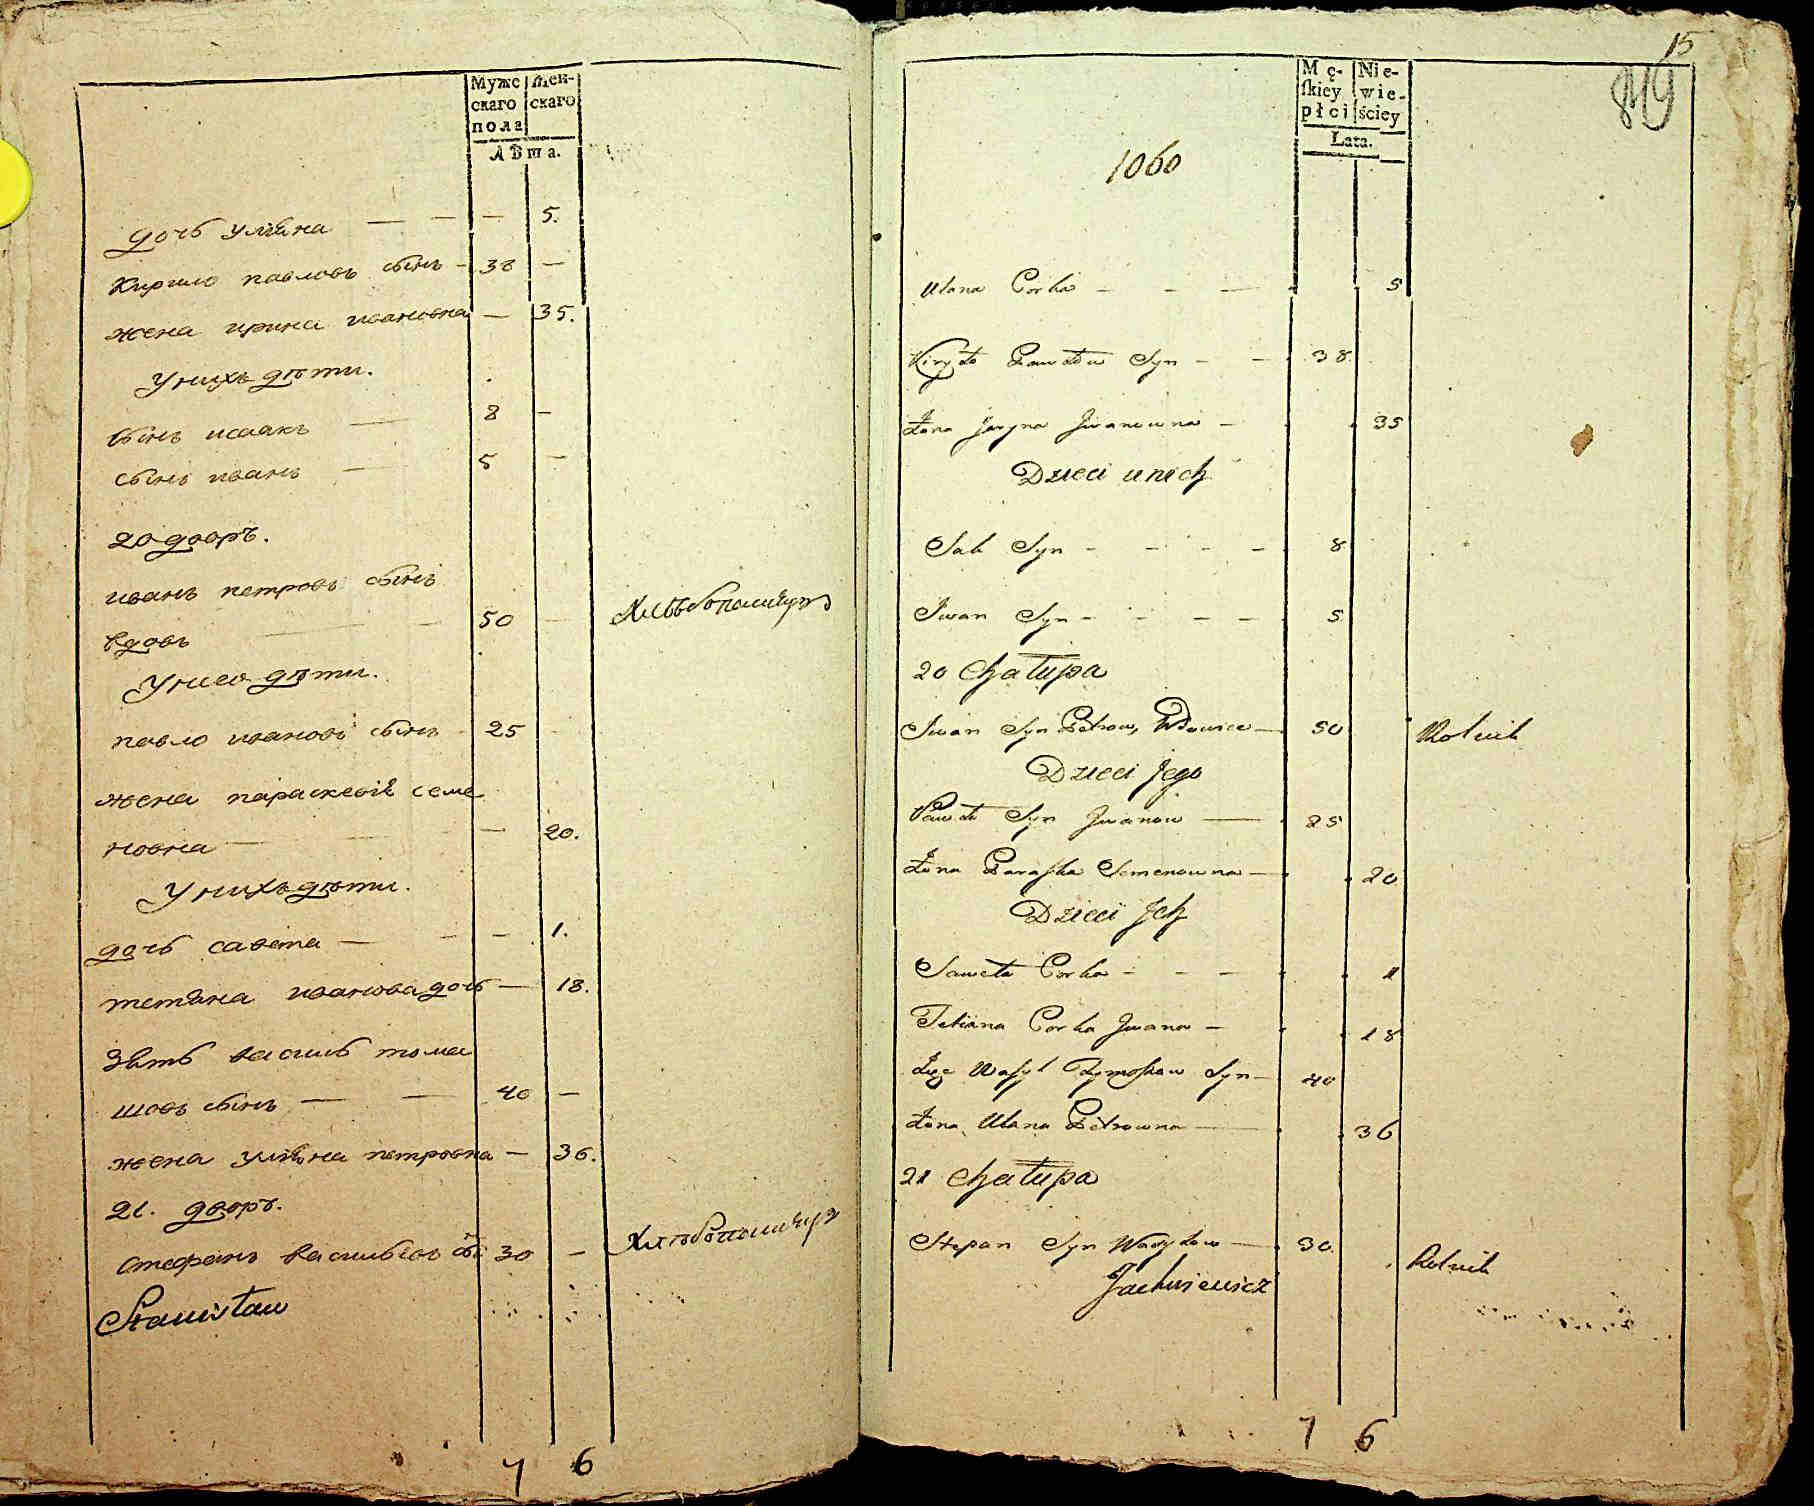 Муже
скаго
пола
Жен-
скаго
Лѣта.
дочь уляна — — — 5.
Кирило павловъ сынъ - 38 —
жена ирина ивановна — 35.
У нихъ дѣти.
сынъ исаакъ — 8 —
сынъ иванъ — 5 —
20 дворъ.
иванъ петровъ сынъ
вдовъ — — 50 — Хлѣбопашецъ
У него дѣти.
павло ивановъ сынъ - 25 -
жена параскевія семе
новна — — — 20.
У нихъ дѣти.
дочь савета — — — 1.
тетяна иванова дочь — 18.
Зять василь тома
шовъ сынъ — — 40 —
жена уляна петровна — 36.
21. дворъ.
стефанъ васильевъ сы 30 — Хлѣбопашецъ
Stanisław
7 6
15
819
Mę-
skiey
płci
Nie-
wie-
ściey
Lata.
1060
Ulana Corka — — — 5
Kiryło Pawłow Syn — — 38
Żona Jaryna Jwanowna — 35
Dzieci u nich
Sak Syn — — — — 8
Jwan Syn — — — — 5
20 Chałupa
Jwan Syn Petrow, Wdowiec — 50 Rolnik
Dzieci Jego
Pawło Syn Jwanow — 25
Żona Paraska Semenowna — 20
Dzieci Jch
Saweta Corka — — — 1
Tetiana Corka Jwana — 18
Zięc Wasyl Tymoszow Syn — 40
Żona Ulana Petrowna — 36
21 Chałupa
Stepan Syn Wasylow — 30 Rolnik
Jachniewicz
7 6